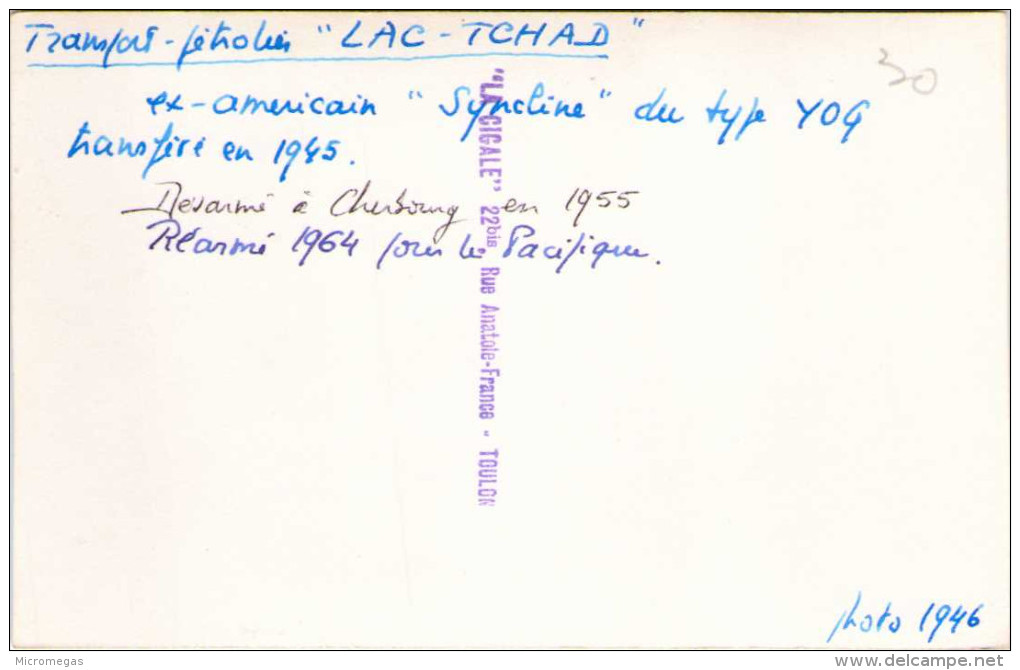 Transport-pétrolier "LAC-TCHAD"
30
ex-americain "Syncline" du type YOG
transféré en 1945.
Désarmé à Cherbourg en 1955
Réarmé 1964 pour le Pacifique.
"LA CIGALE" 22bis Rue Anatole-France - TOULON
photo 1946
Micromegas
www.delcampe.net